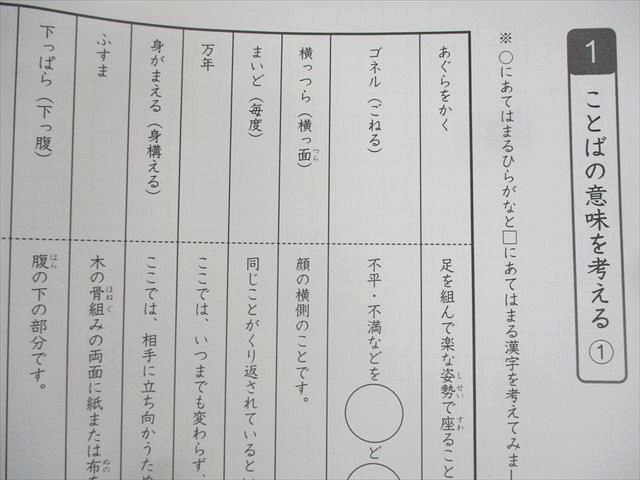 1 ことばの意味を考える①
※ ○にあてはまるひらがなと□にあてはまる漢字を考えてみま
あぐらをかく
足を組んで楽な姿勢で座ること
しせい
すわ
ゴネル（ごねる）
不平・不満などを○ど
横っつら（横っ面）
つら
顔の横側のことです。
まいど（毎度）
同じことがくり返されているとい
万年
ここでは、いつまでも変わらず、
身がまえる（身構える）
ここでは、相手に立ち向かうため
ふすま
木の骨組みの両面に紙または布を
ほねぐ
ぬの
下っぱら（下っ腹）
腹の下の部分です。
はら